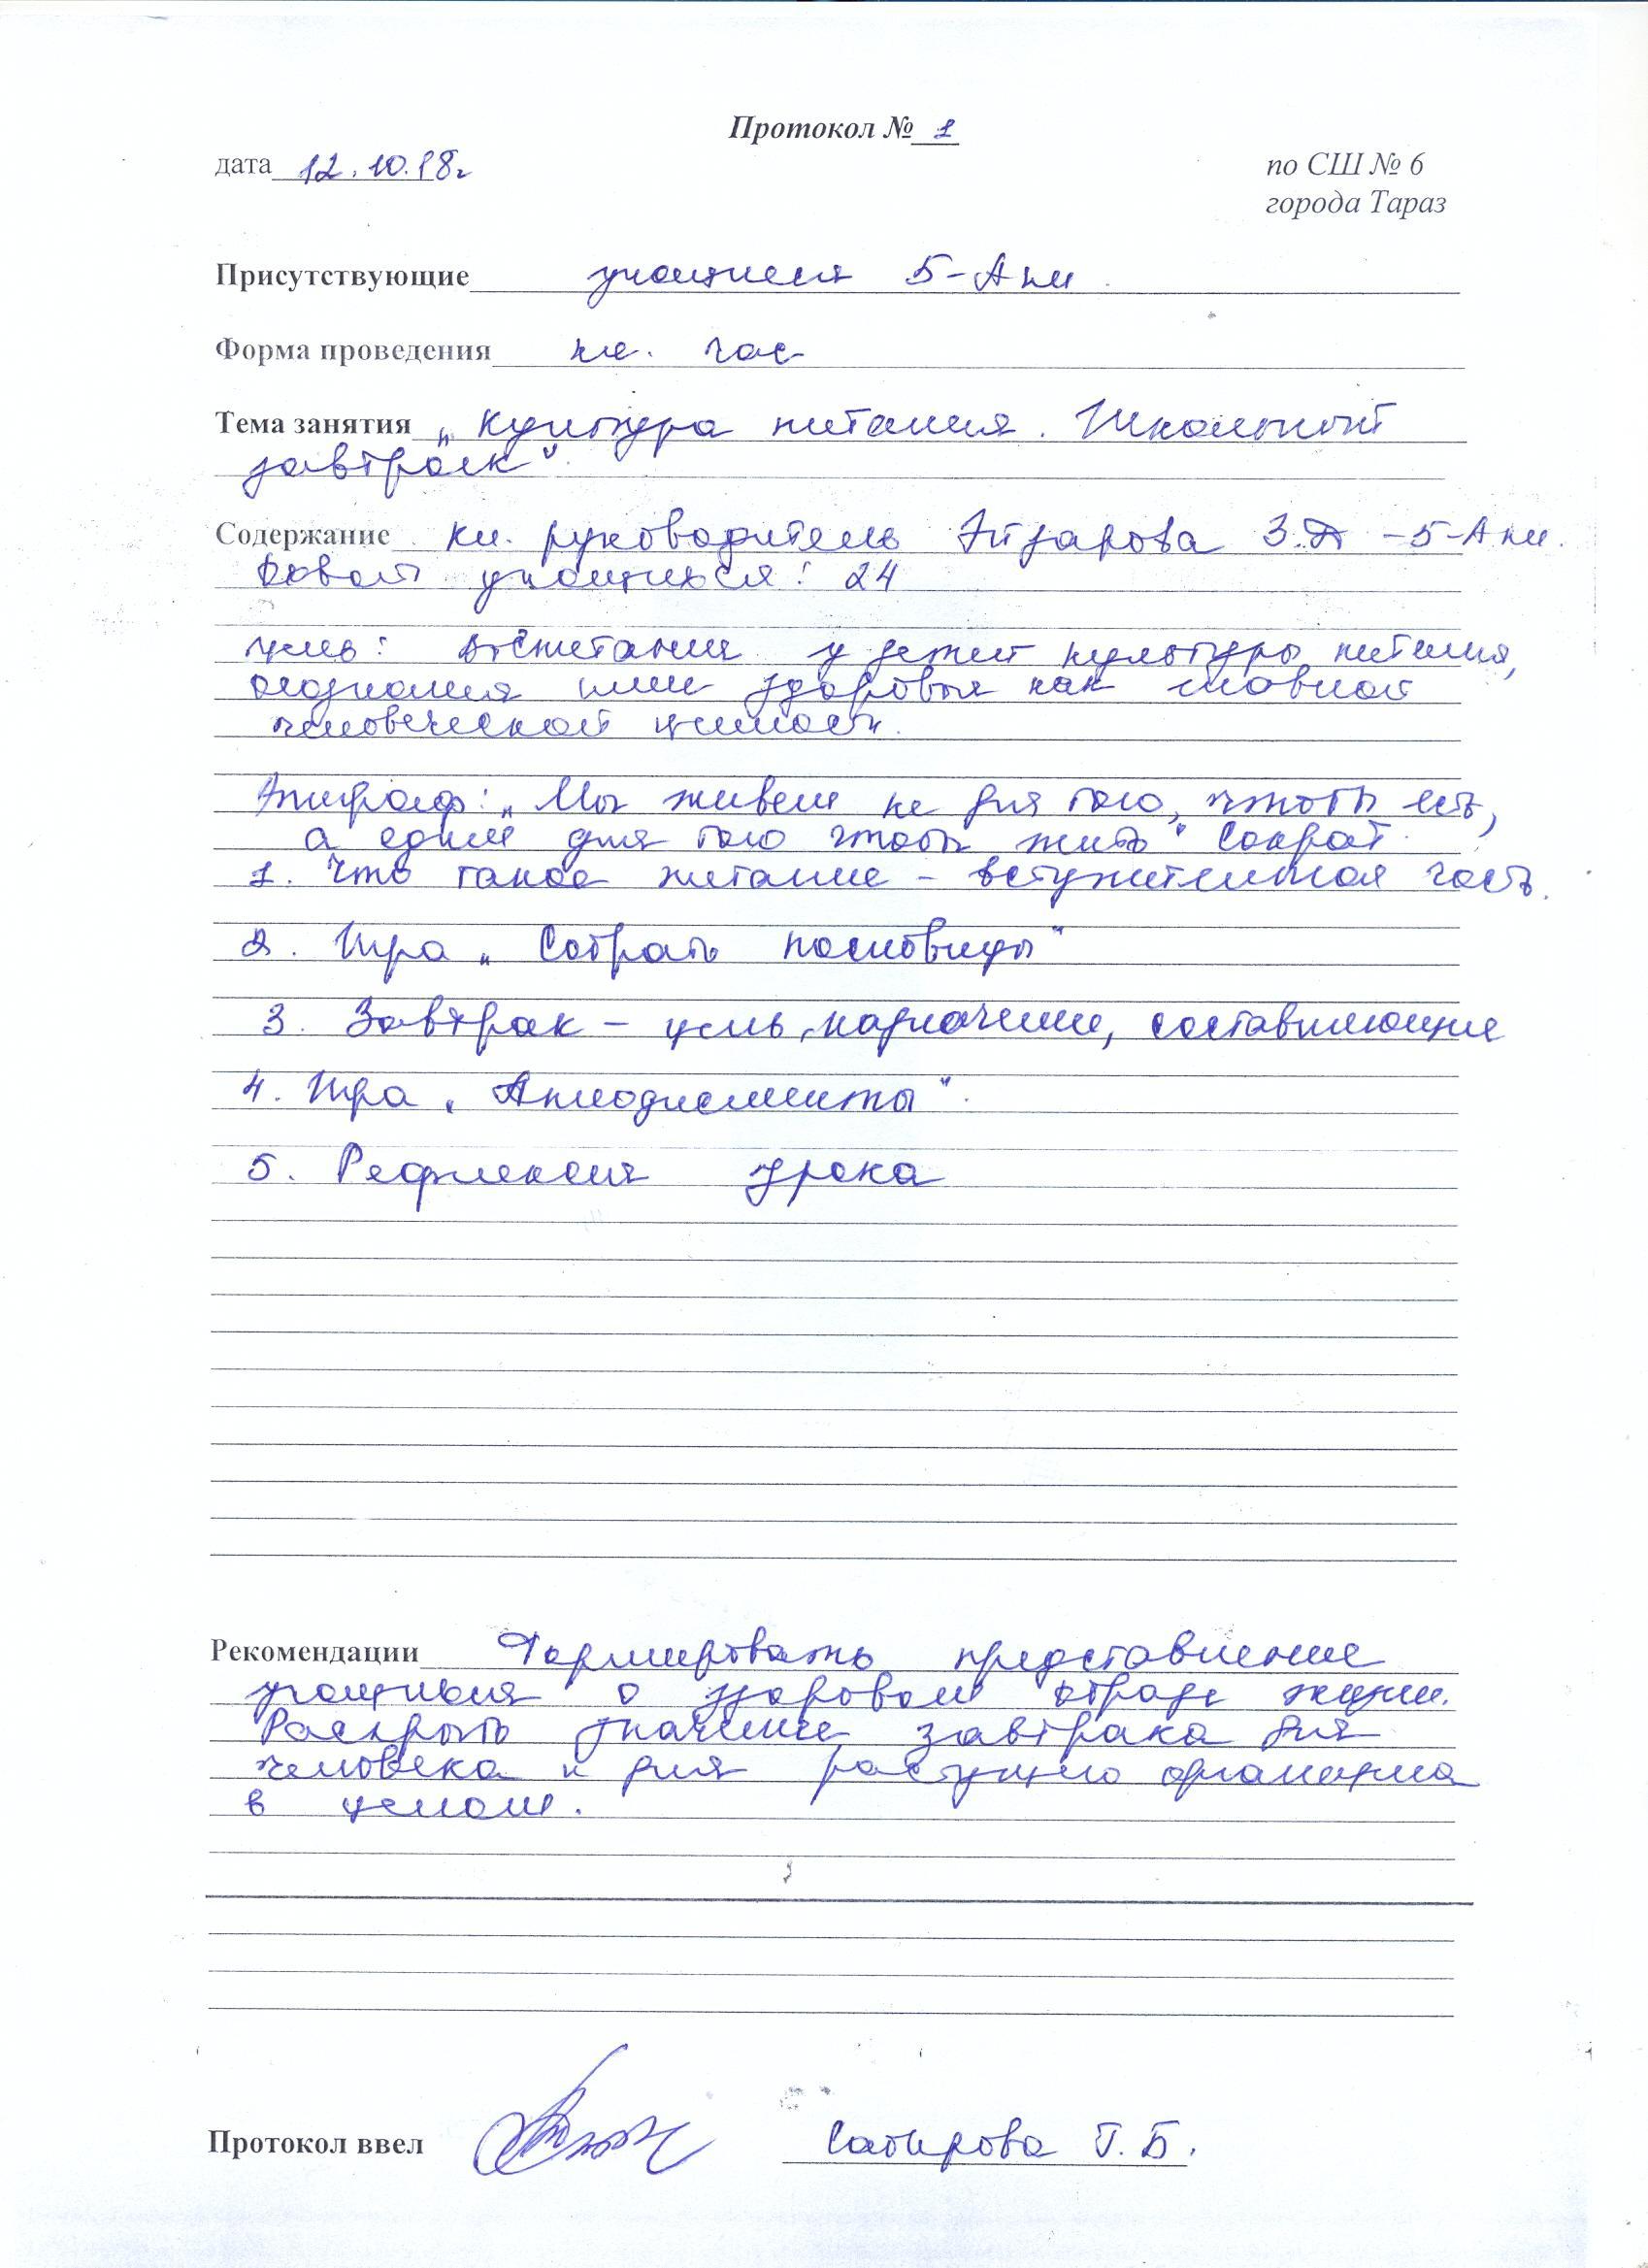 Протокол № 1
дата 12.10.18г
по СШ № 6
города Тараз
Присутствующие учащиеся 5-А кл
Форма проведения кл. час
Тема занятия „Культура питания. Школьный
завтрак".
Содержание кл. руководитель З.Д - 5-А кл.
Охват учащихся: 24
цель: воспитание у детей культуры питания,
осознания ими здоровья как главной
человеческой ценности.
Эпиграф: „Мы живем не для того, чтобы есть,
а едим для того чтобы жить" Сократ
1. Что такое питание – вступительная часть.
2. Игра „Собрать пословицы"
3. Завтрак – цель, назначение, составляющие
4. Игра „Аплодисменты".
5. Рефлексия урока
Рекомендации Формировать представление
учащихся о здоровом образе жизни.
Раскрыть значение завтрака для
человека и для растущего организма
в целом.
Протокол ввел Сабирова Г.Б.